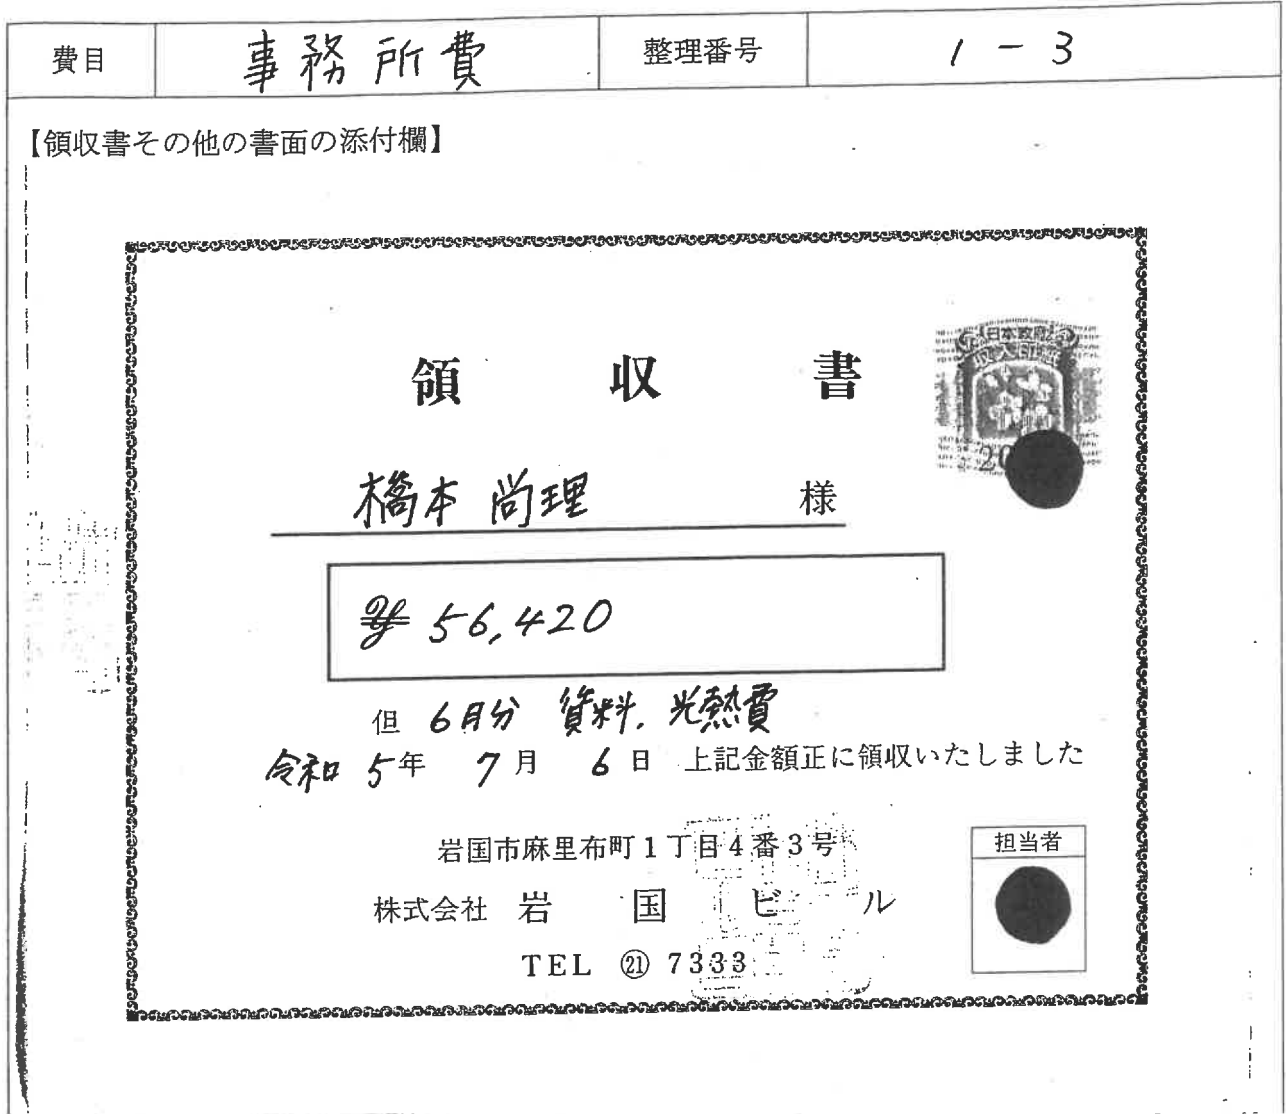 費目 事務所費 整理番号 1-3
【領収書その他の書面の添付欄】
日本政府
収入印紙
領 収 書
20
橋本尚理 様
¥ 56,420
但 6月分 賃料、光熱費
令和 5年 7月 6日 上記金額正に領収いたしました
岩国市麻里布町1丁目4番3号
担当者
株式会社 岩 国 ビ ル
TEL ㉑ 7333